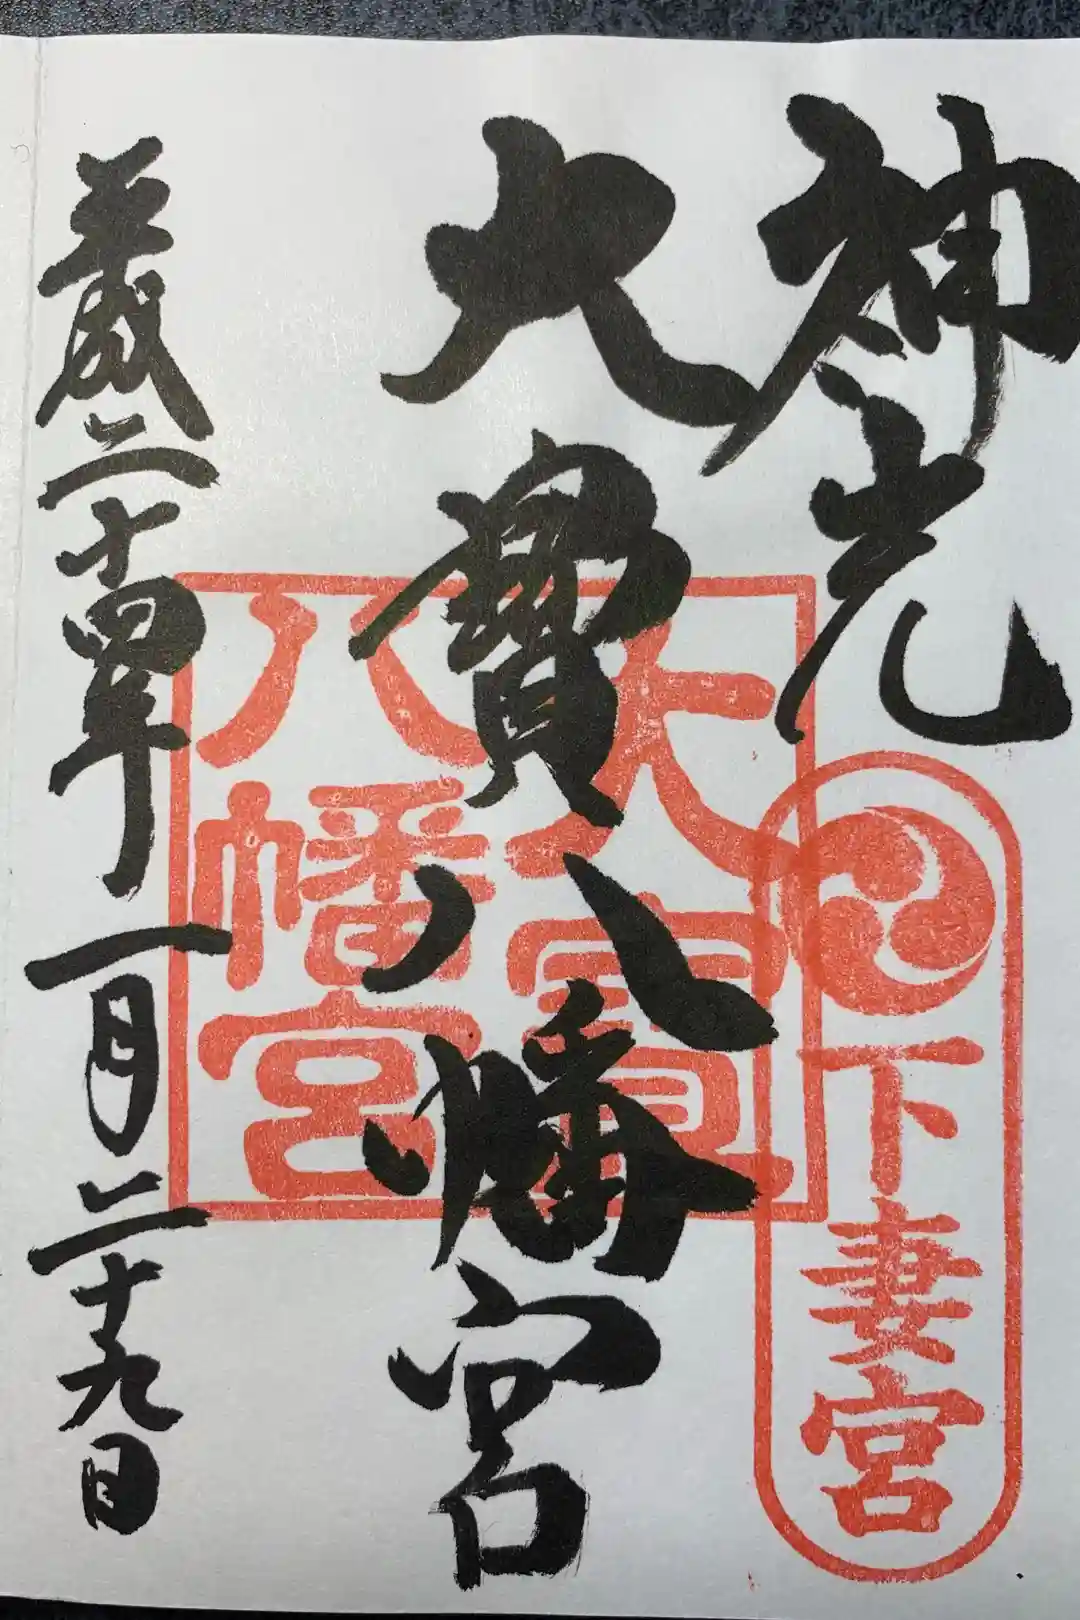 神光
下妻宮
大寶八幡宮
大寶
八幡宮
平成二十四年一月二十九日